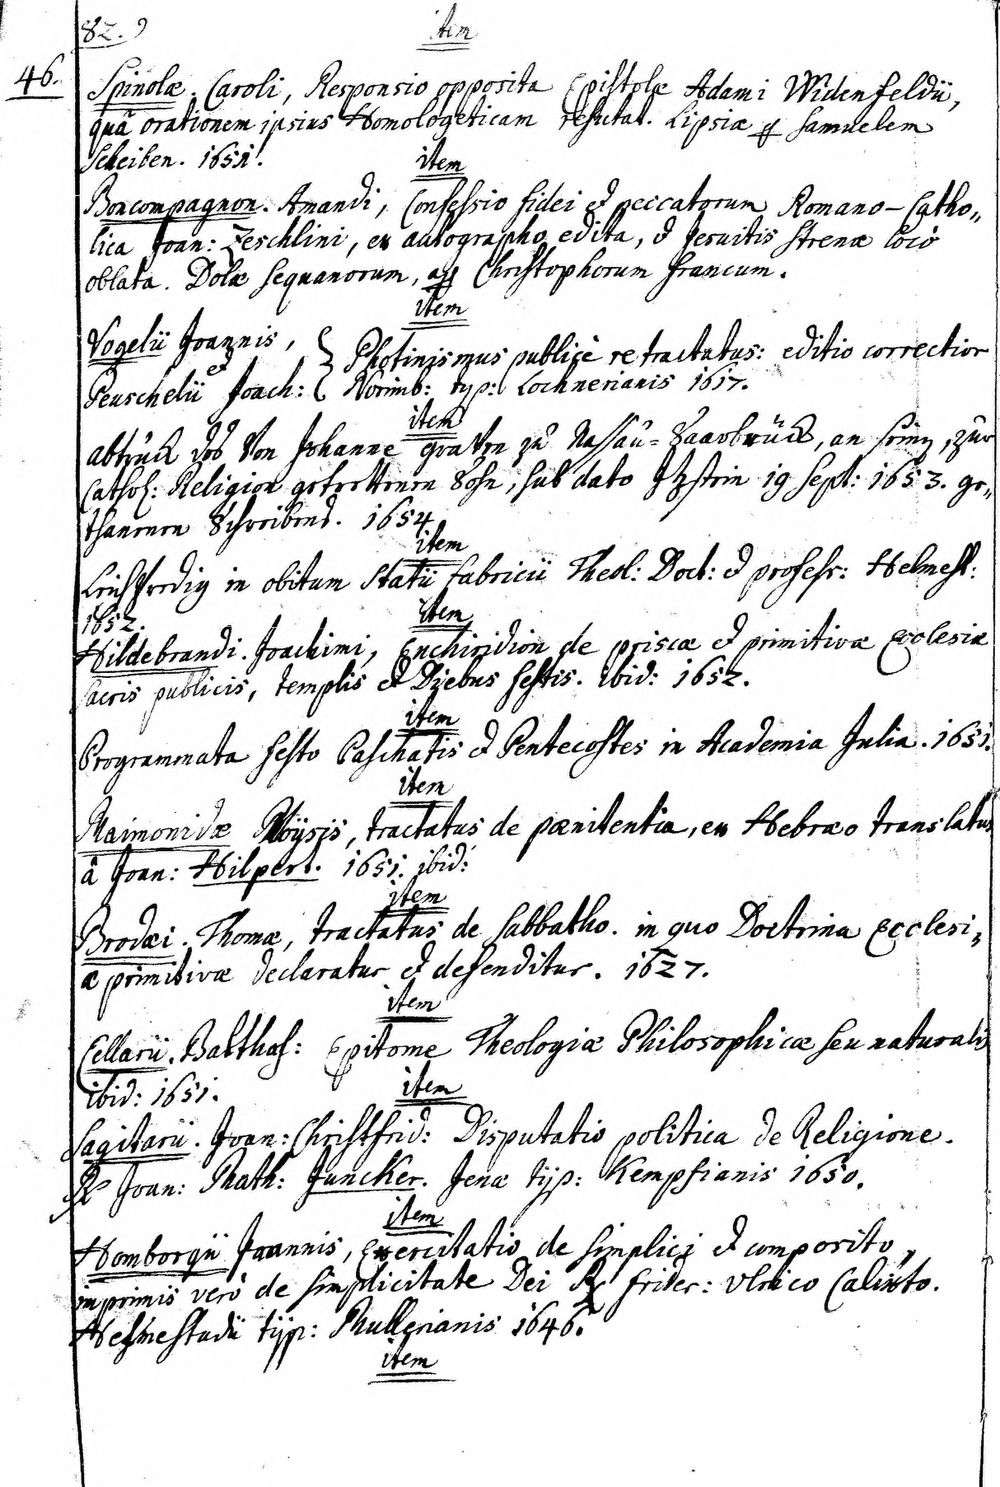 82.
item
46. Spinolæ. Caroli, Responsio opposita Epistolæ Adami Widenfeldii,
quâ orationem ipsius Homologeticam refutat. Lipsiæ Samuelem
Scheiben. 1651.
item
Boncompagnon. Amandi, Confessio fidei et peccatorum Romano-Catho„
lica Joan: Zeschlini, ex autographo edita, et Jesuitis strenæ locô
oblata. Dolæ Sequanorum, Christophorum Francum.
item
Vogelii Joannis,
et
Peuschelii Joach: Photinismus publicè retractatus: editio correctior
Norimb: typ: Lochnerianis 1617.
item
abtruck des Von Johanne graven zu Nassau-Saarbrück, an seinen, zur
Cathol: Religion getrettenen Sohn, sub dato Itzstein 19 Sept: 1653. ge„
thanenen Schreibens. 1654
item
Leichpredig in obitum Statii Fabricii Theol: Doct: et profess: Helmest:
1652.
item
Hildebrandi. Joachimi, Enchiridion de priscæ et primitivæ Ecclesiæ
sacris publicis, templis et Diebus festis. ibid: 1652.
item
Programmata festo Paschatis et Pentecostes in Academia Julia. 1651.
item
Maimonidæ Moÿsis, tractatus de pænitentia, ex Hebræo translatus
â Joan: Hilpert. 1651. ibid:
item
Brodæi. Thomæ, tractatus de sabbatho. in quo Doctrina Ecclesi„
æ primitivæ declaratur et defenditur. 1627.
item
Cellarii. Balthas: Epitome Theologiæ Philosophicæ seu naturalis
ibid: 1651.
item
Sagitarii. Joan: Christfrid: Disputatio politica de Religione.
R Joan: Math: Juncker. Jenæ tÿp: Kempfianis 1650.
item
Homborgii Joannis, Exercitatio de simplici et composito,
inprimis verò de simplicitate Dei R Frider: Ulrico Calixto.
Helmestadii tÿp: Mullerianis 1646.
item